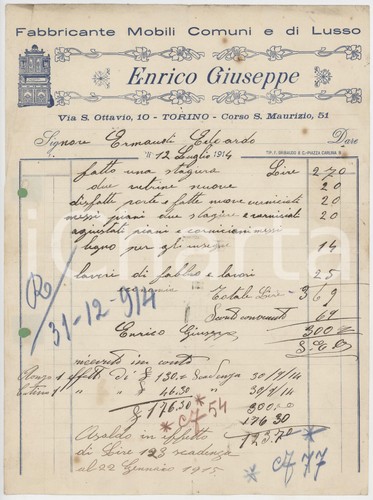 Fabbricante Mobili Comuni e di Lusso
Enrico Giuseppe
Via S. Ottavio, 10 - TORINO - Corso S. Maurizio, 51
Signore Edoardo Dare
lì 12 Luglio 1914
TIP. F. GRIBAUDO & C. - PIAZZA CARLINA
fatto una Lire 270
due vetrine nuove 20
disfatte porte e fatte nuove verniciati 20
messi piani due e verniciati 20
aggiustati piani e cornicioni messi
legno per gli 14
lavori di fabbro e lavori 25
Totale Lire 369
Sconti 69
Enrico Giuseppe 300
R 31-12-914
ricevuti in conto
effetti di £ 130 Scadenza 30/7/14
" " 46.30 " 30/9/14
£ 176.30 300.00
176.30
123.70
cf 54
in effetto
di Lire 123 scadenza
al 22 Gennaio 1915
cf 77